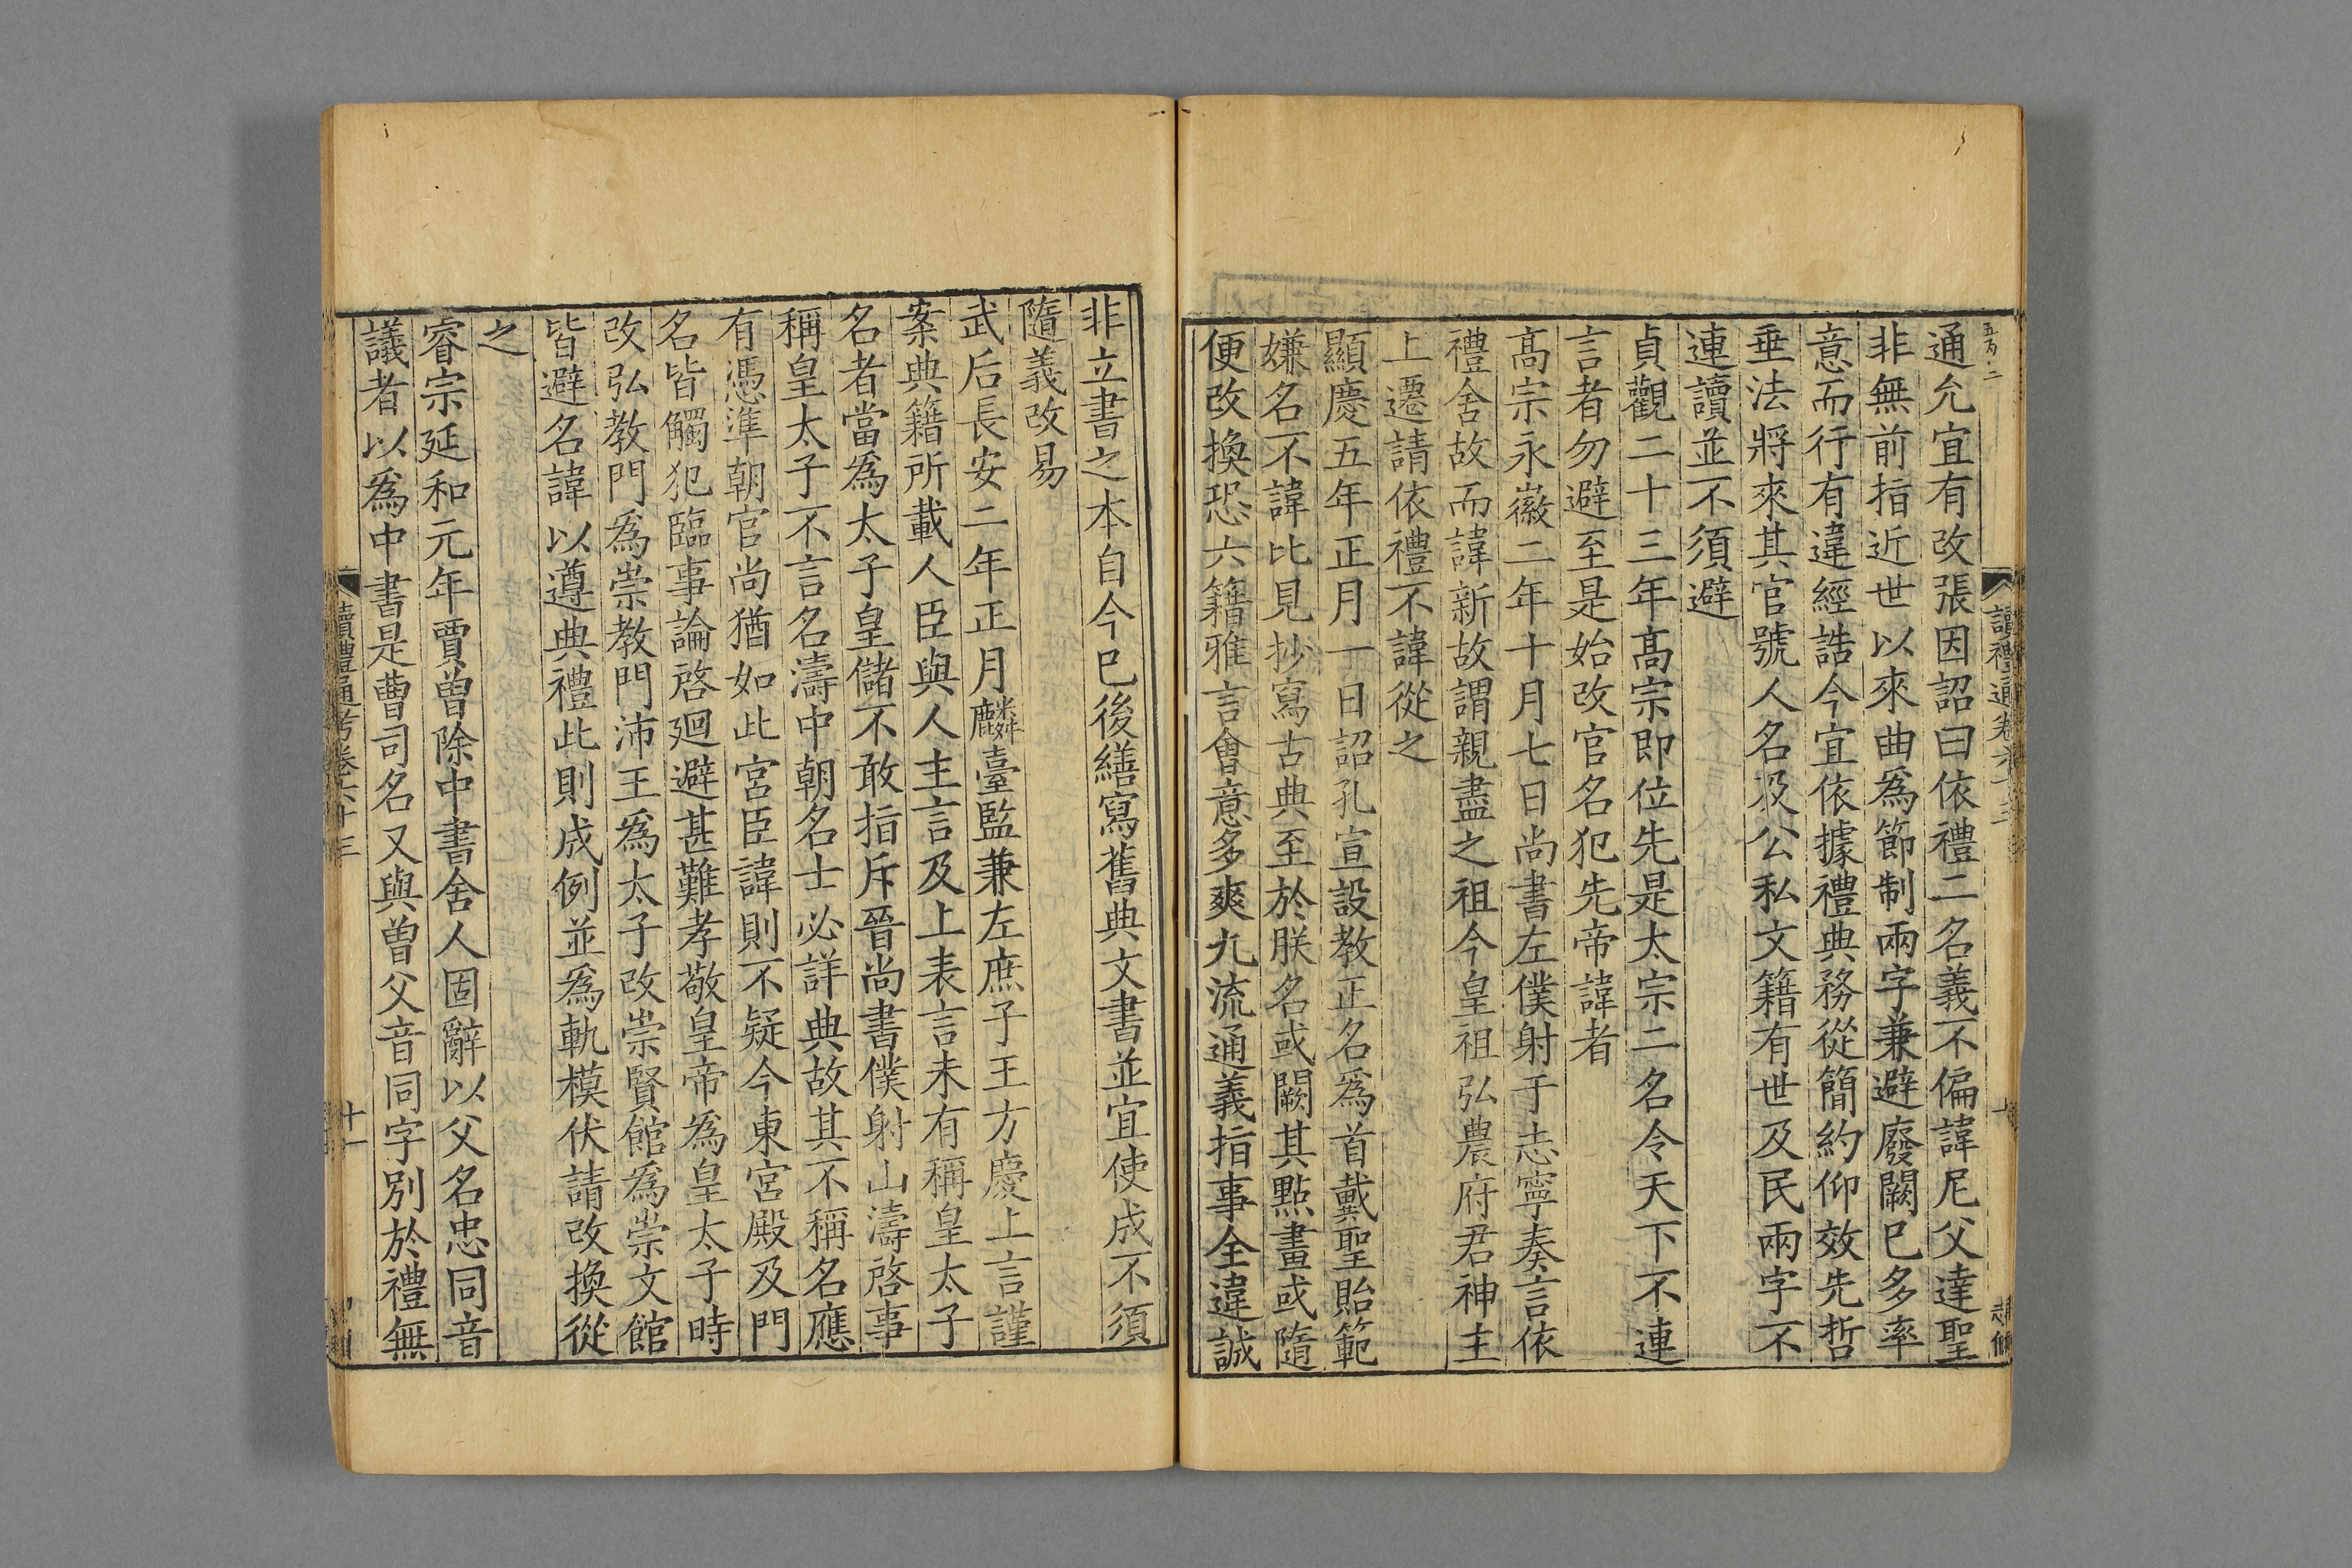 通允宜有改張因詔曰依禮二名義不偏諱尼父達聖
非無前指近世以來曲爲節制兩字兼避廢闕已多率
意而行有違經誥今宜依據禮典務從簡約仰效先哲
垂法將來其官號人名及公私文籍有世及民兩字不
連讀並不須避
貞觀二十三年髙宗即位先是太宗二名令天下不連
言者勿避至是始改官名犯先帝諱者
髙宗永徽二年十月七日尚書左僕射于志寧奏言依
禮舍故而諱新故謂親盡之祖今皇祖弘農府君神主
上遷請依禮不諱從之
顯慶五年正月一日詔孔宣設教正名爲首戴聖貽範
嫌名不諱比見抄寫古典至於朕名或闕其點畫或隨
便改換恐六籍雅言會意多爽九流通義指事全違誠
非立書之本自今已後繕寫舊典文書並宜使成不須
隨義改易
武后長安二年正月麟臺監兼左庶子王方慶上言謹
案典籍所載人臣與人主言及上表言未有稱皇太子
名者當爲太子皇儲不敢指斥晉尚書僕射山濤啓事
稱皇太子不言名濤中朝名士必詳典故其不稱名應
有憑準朝官尚猶如此宮臣諱則不疑今東宮殿及門
名皆觸犯臨事論啓廻避甚難孝敬皇帝爲皇太子時
改弘教門爲崇教門沛王爲太子改崇賢館爲崇文館
皆避名諱以遵典禮此則成例並爲軌模伏請改換從
之
睿宗延和元年賈曾除中書舍人固辭以父名忠同音
議者以爲中書是曹司名又與曾父音同字別於禮無
讀禮通考卷六十三
十一